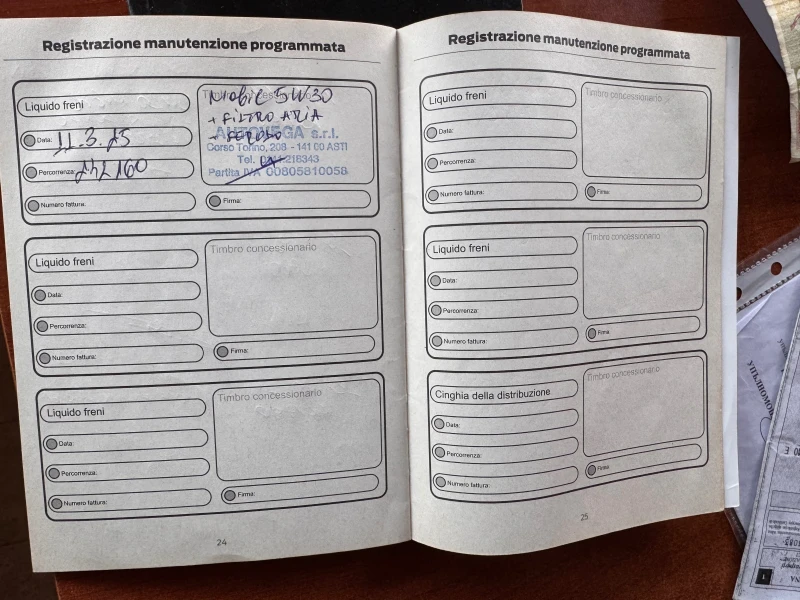 Registrazione manutenzione programmata
Liquido freni
Data: 11.3.25
Percorrenza: 242160
Numero fattura:
Timbro concessionario
Mobil 5W30
+ FILTRO ARIA
AUTOVEGA s.r.l.
Corso Torino, 208 - 141 00 ASTI
Tel. 0141 218343
Partita IVA 00805810058
Firma:
Liquido freni
Data:
Percorrenza:
Numero fattura:
Timbro concessionario
Firma:
Liquido freni
Data:
Percorrenza:
Numero fattura:
Timbro concessionario
Firma:
24
Registrazione manutenzione programmata
Liquido freni
Data:
Percorrenza:
Numero fattura:
Timbro concessionario
Firma:
Liquido freni
Data:
Percorrenza:
Numero fattura:
Timbro concessionario
Firma:
Cinghia della distribuzione
Data:
Percorrenza:
Numero fattura:
Timbro concessionario
Firma:
25
УПЪЛНОМО